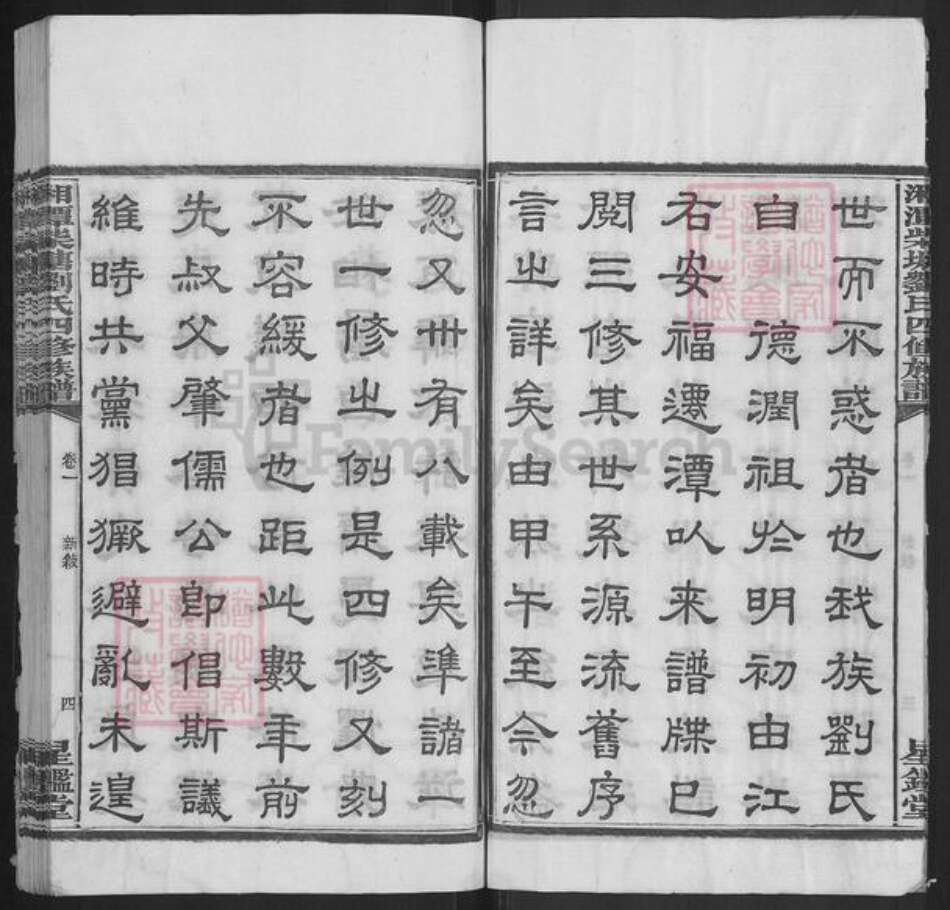 世而不惑者也我族劉氏
自德潤祖於明初由江
右安福遷潭以來譜牒已
閱三修其世系源流舊序
言之詳矣由甲午至今忽
忽又卅有八載矣準諸一
世一修之例是四修又刻
不容緩者也距此數年前
先叔父肇儒公即倡斯議
維時共黨猖獗避亂未遑
湘潭柴塘劉氏四修族譜
卷一
新敍
四
星鑑堂
FamilySearch